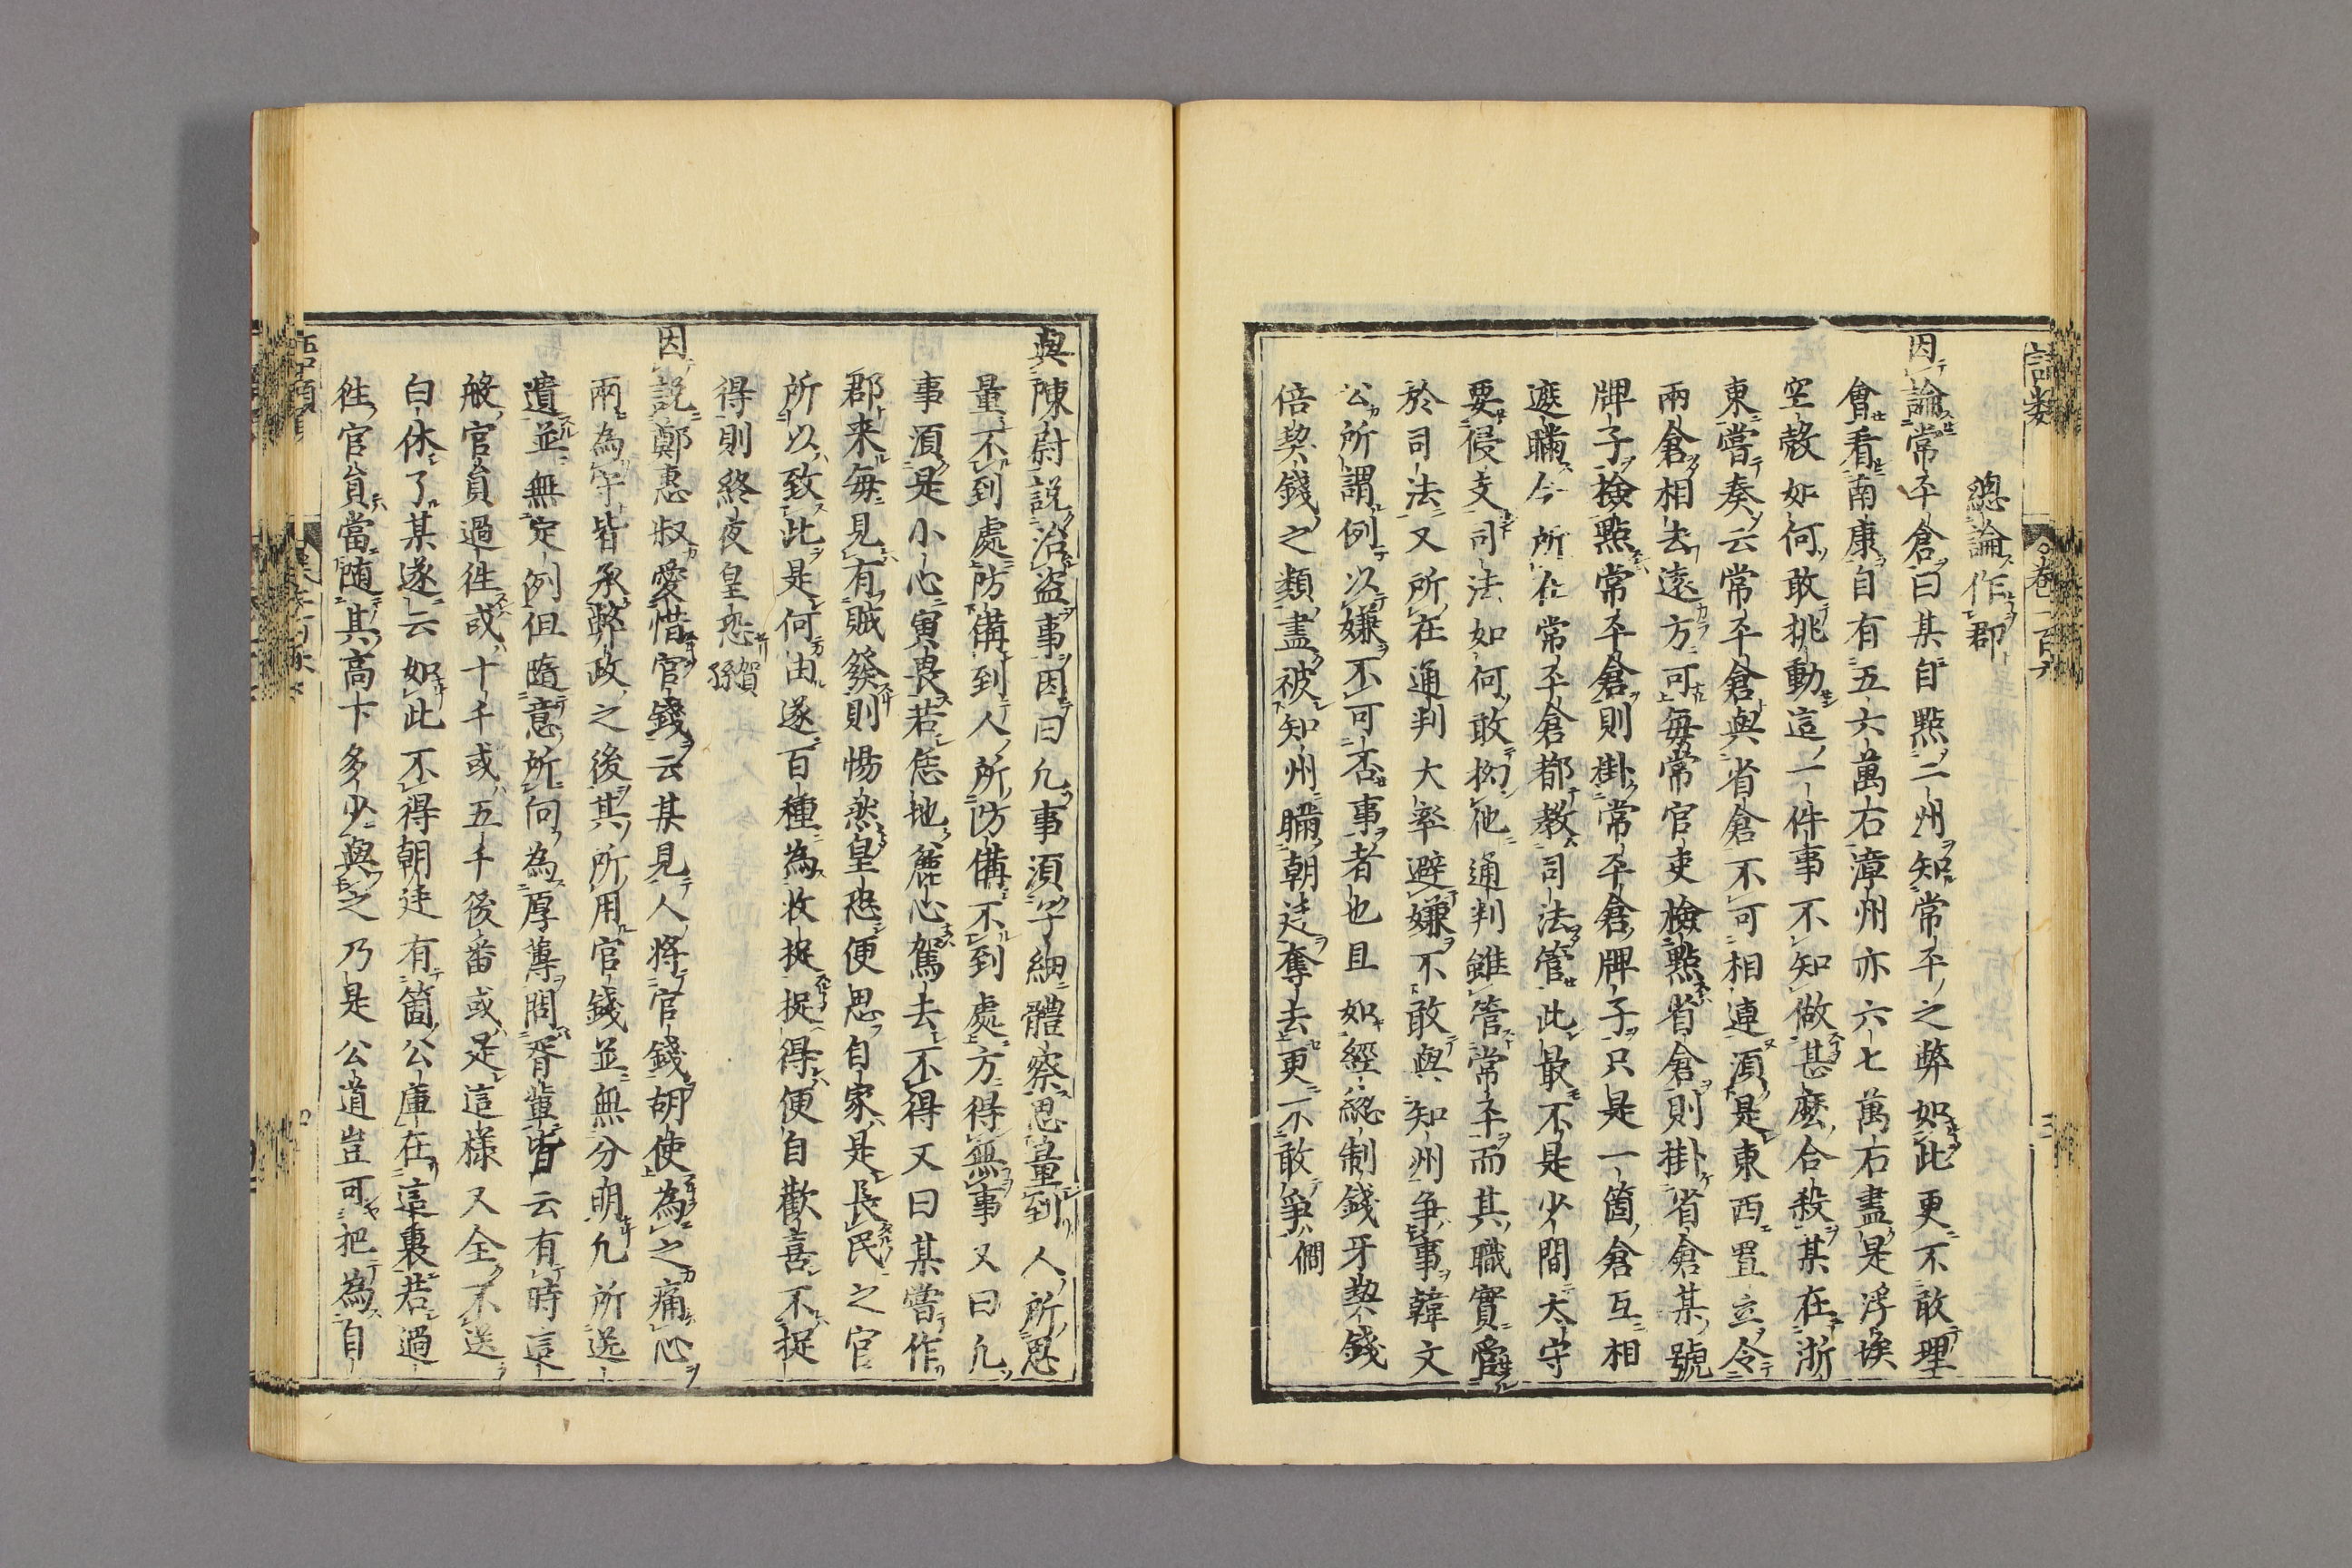 語類
卷一百六
三
總論作郡
因論常平倉曰某自點二州知常平之弊如此更不敢理
會看南康自有五六萬石漳州亦六七萬石盡是浮埃
空殼如何敢挑動這一件事不知做甚麽合殺某在浙
東嘗奏云常平倉與省倉不可相連須是東西置立令
兩倉相去遠方可每常官吏檢點省倉則掛省倉某號
牌子檢點常平倉則掛常平倉牌子只是一箇倉互相
遮瞞今所在常平倉都教司法管此最不是少間太守
要侵支司法如何敢拗他通判雖管常平而其職實爲
於司法又所在通判大率避嫌不敢與知州争事韓文
公所謂例以嫌不可否事者也且如經緫制錢牙契錢
倍契錢之類盡被知州瞞朝廷奪去更不敢爭 僩
與陳尉説治盗事因曰凡事湏子細體察思量到人所思
量不到處防備到人所防備不到處方得無事又曰凡
事湏是小心寅畏若恁地麄心駕去不得又曰某嘗作
郡来每見有賊發則惕然皇恐便思自家是長民之官
所以致此是何由遂百種為收捉捉得便自歡喜不捉
得則終夜皇恐 賀孫
因説鄭惠叔愛惜官錢云某見人將官錢胡使為之痛心
兩為守皆承弊政之後其所用官錢並無分明凡所送
遺並無定例但隨意所向為厚薄問胥輩皆云有時這
般官員過徃或十千或五千後番或是這様又全不送
白休了某遂云如此不得朝廷有箇公庫在這裏若過
徃官員當随其高下多少與之乃是公道豈可把為自